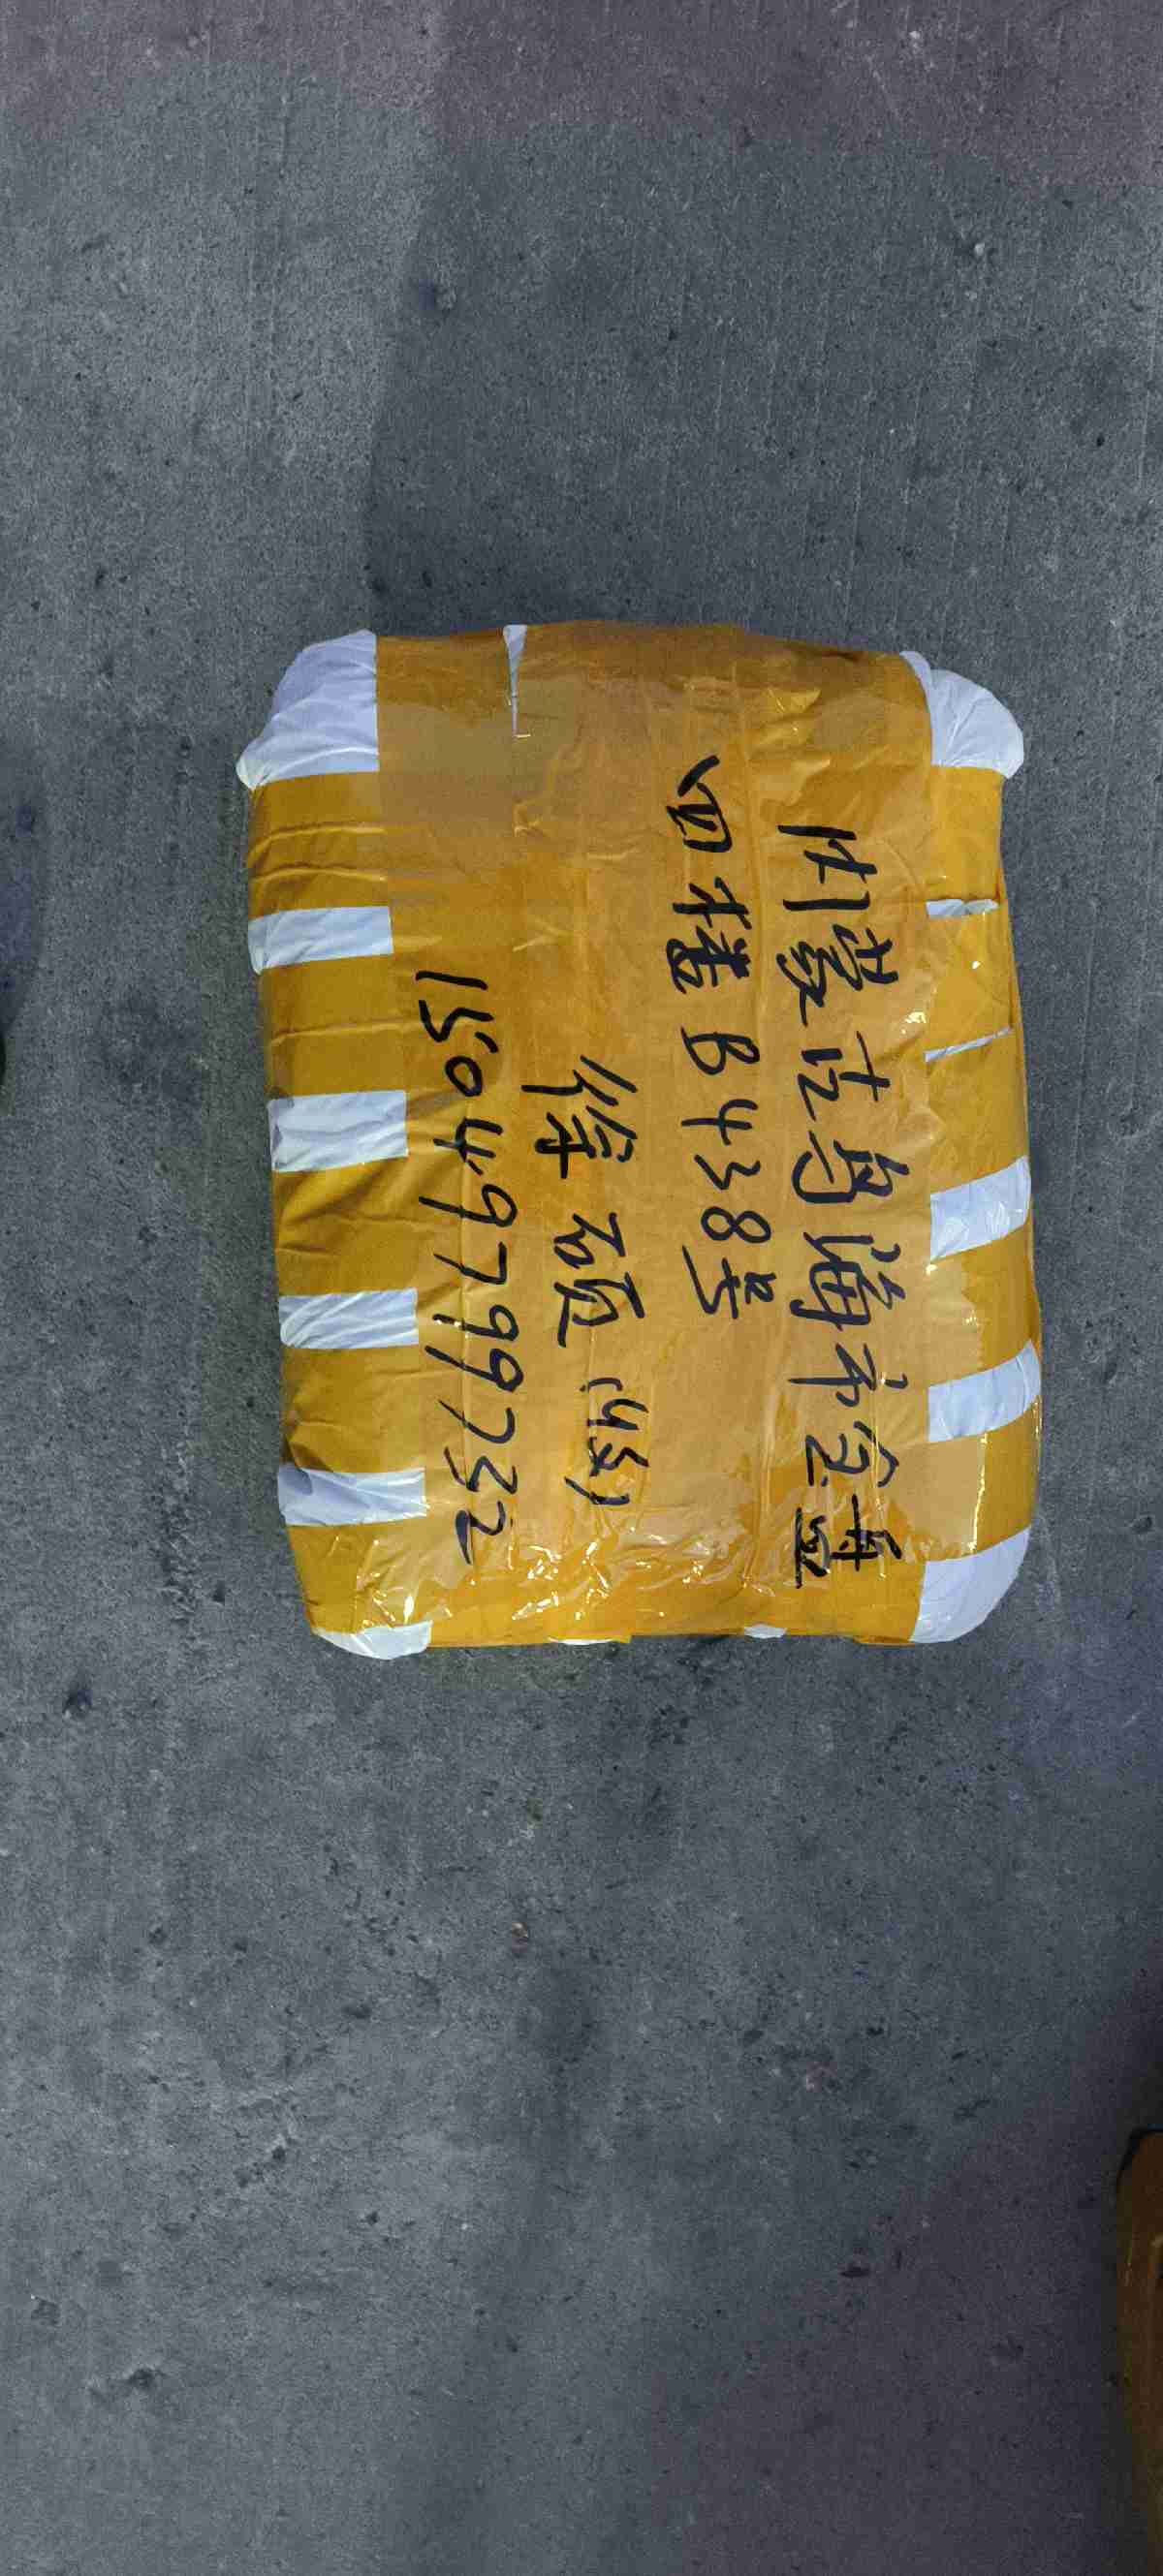 内蒙古乌海市金車
四楼B438号
徐硕(收)
15049799732